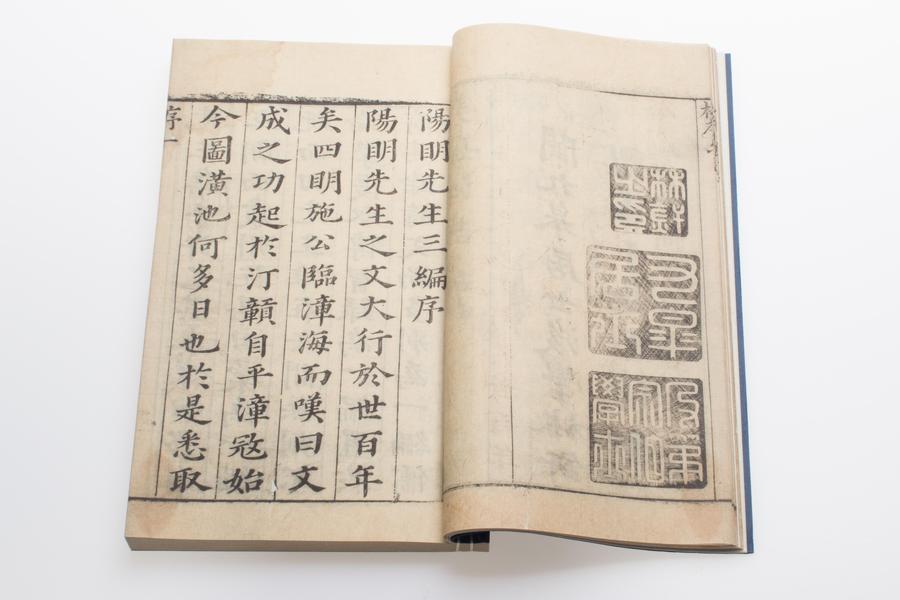 陽眀先生三編序
陽眀先生之文大行於世百年
矣四眀施公臨漳海而嘆曰文
成之功起扵汀贑自平漳㓂始
今圖潢池何多日也扵是悉取
序一